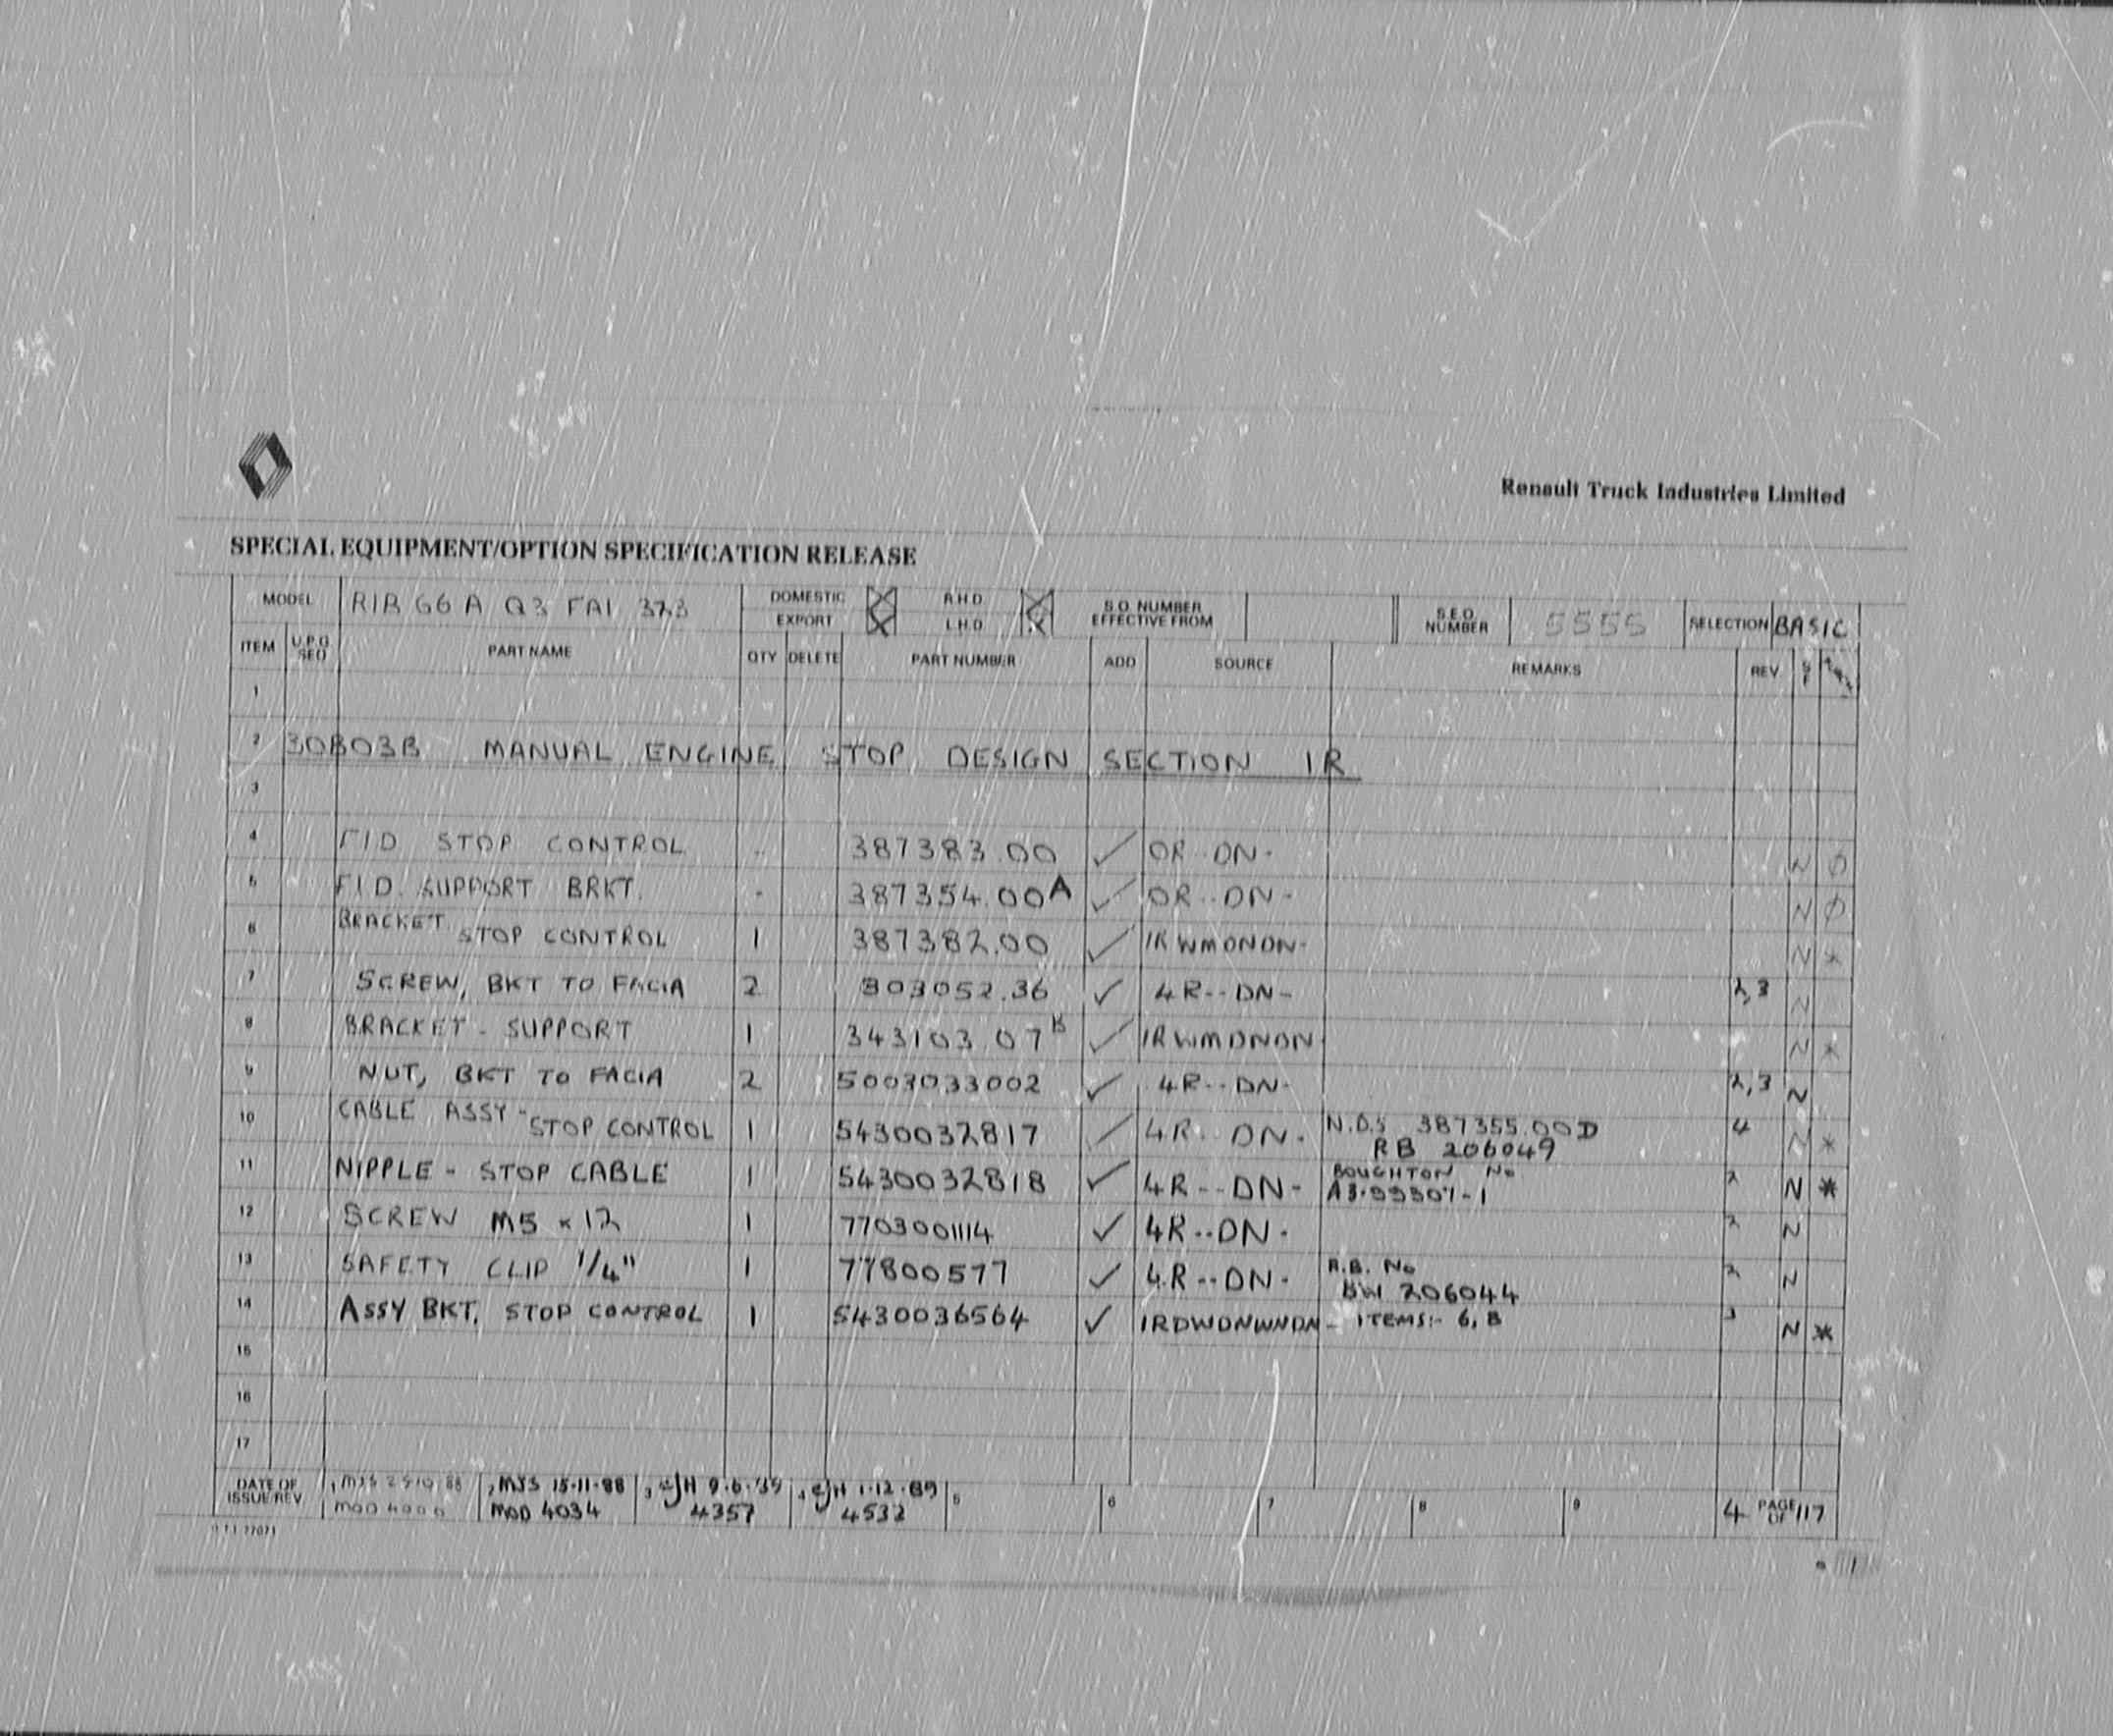 Renault Truck Industries Limited
SPECIAL EQUIPMENT/OPTION SPECIFICATION RELEASE
MODEL RIB G6 A Q3 FAI 373 DOMESTIC EXPORT R.H.D. L.H.D. S.O. NUMBER EFFECTIVE FROM S.E.O. NUMBER 5555 SELECTION BASIC
ITEM U.P.G. SEQ PART NAME QTY DELETE PART NUMBER ADD SOURCE REMARKS REV
1
2 30B03B MANUAL ENGINE STOP DESIGN SECTION 1R
3
4 FID STOP CONTROL - 387383.00 ✓ OR--DN- N Ø
5 FID. SUPPORT BRKT. - 387354.00A ✓ OR--DN- N Ø
6 BRACKET STOP CONTROL 1 387382.00 ✓ 1RWMDNDN- N *
7 SCREW, BKT TO FACIA 2 803052.36 ✓ 4R--DN- 2,3 N
8 BRACKET - SUPPORT 1 343103 07B ✓ 1RWMDNDN N *
9 NUT, BKT TO FACIA 2 5003033002 ✓ 4R--DN- 2,3 N
10 CABLE ASSY - STOP CONTROL 1 5430032817 ✓ 4R--DN- N.D.S 387355.00D 4 N *
RB 206049
11 NIPPLE - STOP CABLE 1 5430032818 ✓ 4R--DN- BOUGHTON No 2 N *
12 SCREW M5 x 12 1 7703001114 ✓ 4R--DN- 2 N
13 SAFETY CLIP 1/4" 1 77800577 ✓ 4R--DN- R.B. No 2 N
BW 206044
14 ASSY BKT, STOP CONTROL 1 5430036564 ✓ 1RDWDNWNDN- ITEMS:- 6, 8 3 N *
15
16
17
DATE OF ISSUE/REV 1 MJS 25 10 88 2 MJS 15-11-88 3 CJH 9.6.89 4 CJH 1.12.89 5 6 7 8 9 4 PAGE OF 117
MOD 4000 MOD 4034 4357 4532